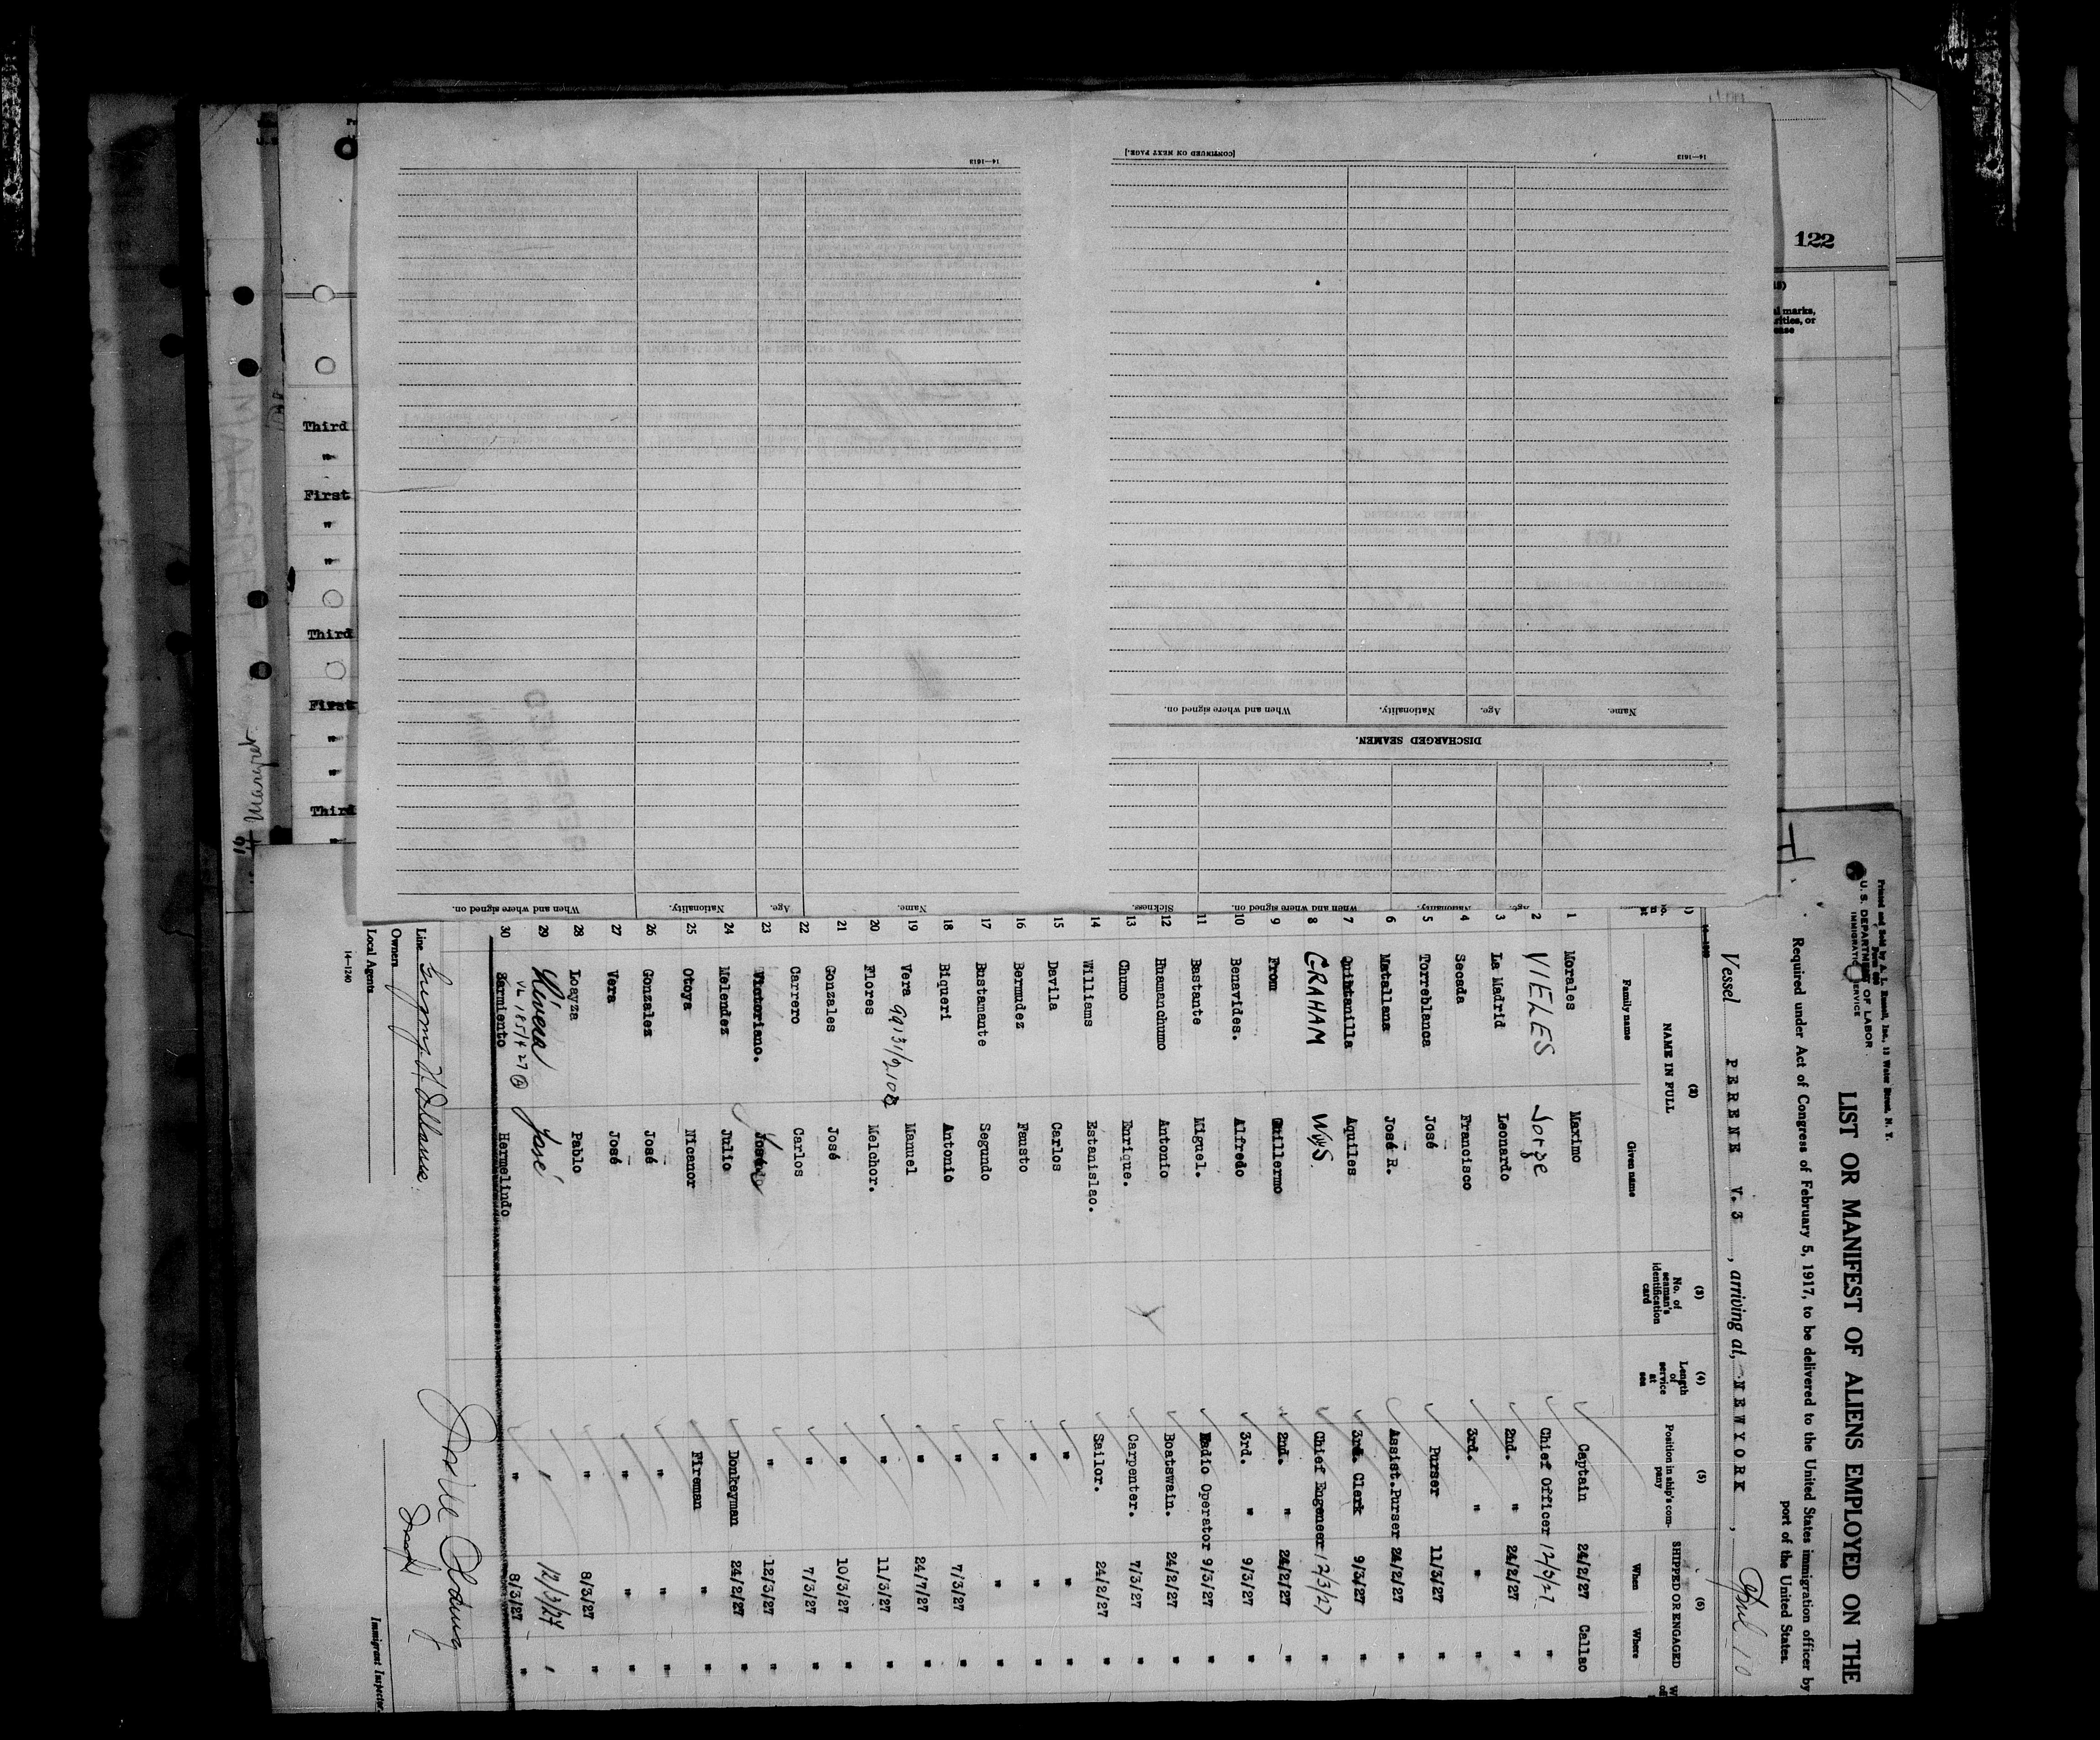 122
Third
"
First
"
"
Third
First
"
"
Third
"
[CONTINUED ON NEXT PAGE.]
14—1613
14—1613
When and where signed on. Nationality. Age. Name.
DISCHARGED SEAMEN.
When and where signed on. Nationality. Age. Name.
Sickness. When and where signed on. Nationality. Age.
Printed and Sold by A. L. Russell, Inc., 12 Water Street, N. Y.
U. S. DEPARTMENT OF LABOR
IMMIGRATION SERVICE
LIST OR MANIFEST OF ALIENS EMPLOYED ON THE
Required under Act of Congress of February 5, 1917, to be delivered to the United States immigration officer by
port of the United States.
Vessel PERENE V. 3 , arriving at, NEW YORK , April 10
(2) (3) (4) (5) (6)
NAME IN FULL No. of seaman's identification card Length of service at sea Position in ship's company SHIPPED OR ENGAGED
Family name Given name When Where
1 Morales Maximo Captain 24/2/27 Callao
2 VIELES Jorge Chief Officer 12/3/27 "
3 La Madrid Leonardo 2nd. " 24/2/27 "
4 Secada Francisco 3rd. " " "
5 Torreblanca José Purser 11/3/27 "
6 Matallana José R. Assist.Purser 24/2/27 "
7 Quintanilla Aquiles 3rd. Clerk 9/3/27 "
8 GRAHAM Wys. Chief Engeneer 12/3/27 "
9 From Guillermo 2nd. " 24/2/27 "
10 Benavides. Alfredo 3rd. " 9/3/27 "
11 Bastante Miguel. Radio Operator 9/3/27 "
12 Huamanchumo Antonio Boatswain. 24/2/27 "
13 Chumo Enrique. Carpenter. 7/3/27 "
14 Williams Estanislao. Sailor. 24/2/27 "
15 Davila Carlos " " "
16 Bermudez Fausto " " "
17 Bustamante Segundo " " "
18 Biqueri Antonio " 7/3/27 "
19 Vera Manuel " 24/7/27 "
20 Flores Melchor. " 11/3/27 "
21 Gonzales José " 10/3/27 "
22 Carrero Carlos " 7/3/27 "
23 Victoriano. José " 12/3/27 "
24 Melendez Julio Donkeyman 24/2/27 "
25 Otoya Nicanor Fireman " "
26 Gonzales José " " "
27 Vera José " " "
28 Loayza Pablo " 8/3/27 "
29 Rivera José " 12/3/27 "
30 Sarmiento Hermelindo " 8/3/27 "
Line
Owners
Local Agents
14—1240
Immigrant Inspector.